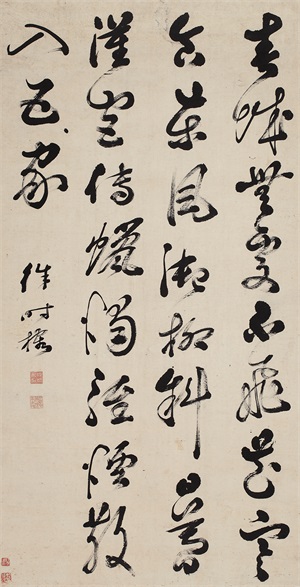 春城無處不飛花寒
食東風御柳斜日暮
漢宮傳蠟燭輕煙散
入五家
徐時